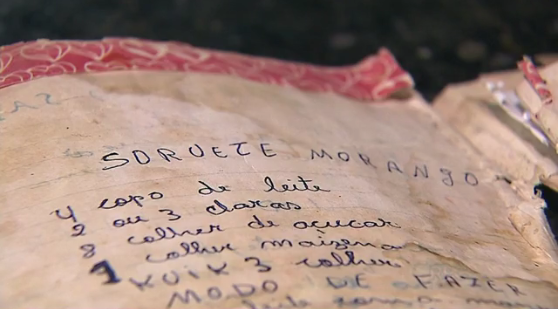 SORVETE MORANGO
4 copo de leite
2 ou 3 claras
8 colher de açucar
1 colher maizena
KUIK 3 colher
MODO DE FAZER
leite com a